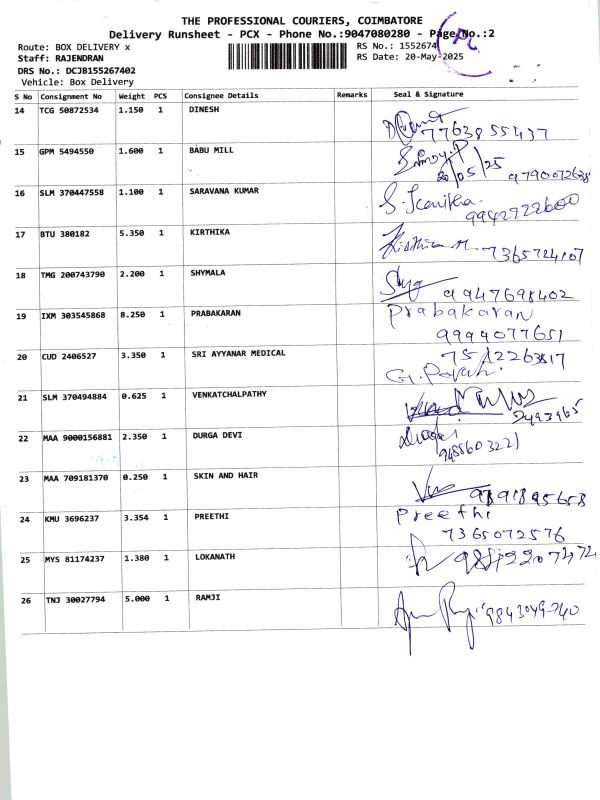 THE PROFESSIONAL COURIERS, COIMBATORE
Delivery Runsheet - PCX - Phone No.:9047080280 - Page No.:2
Route: BOX DELIVERY x
RS No.: 1552674
Staff: RAJENDRAN
RS Date: 20-May-2025
DRS No.: DCJB155267402
Vehicle: Box Delivery
S No Consignment No Weight PCS Consignee Details Remarks Seal & Signature
14 TCG 50872534 1.150 1 DINESH
7763855437
15 GPM 5494550 1.600 1 BABU MILL
20/05/25
16 SLM 370447558 1.100 1 SARAVANA KUMAR
17 BTU 380182 5.350 1 KIRTHIKA
7365724107
18 TMG 200743790 2.200 1 SHYMALA
9947698402
19 IXM 303545868 8.250 1 PRABAKARAN Prabakaran
9994077651
20 CUD 2406527 3.350 1 SRI AYYANAR MEDICAL
21 SLM 370494884 0.625 1 VENKATCHALPATHY
22 MAA 9000156881 2.350 1 DURGA DEVI
23 MAA 709181370 0.250 1 SKIN AND HAIR
24 KMU 3696237 3.354 1 PREETHI Preethi
7365072576
25 MYS 81174237 1.380 1 LOKANATH
26 TNJ 30027794 5.000 1 RAMJI